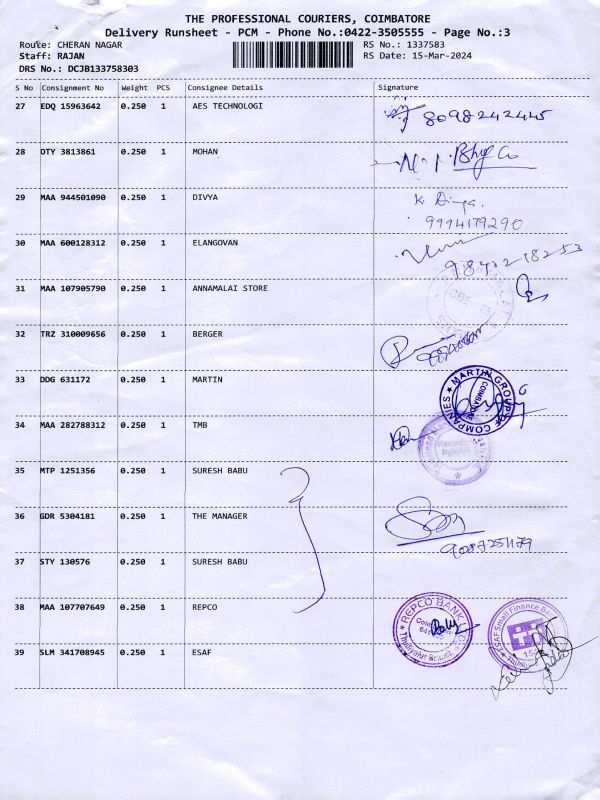 THE PROFESSIONAL COURIERS, COIMBATORE
Delivery Runsheet - PCM - Phone No.:0422-3505555 - Page No.:3
Route: CHERAN NAGAR RS No.: 1337583
Staff: RAJAN RS Date: 15-Mar-2024
DRS No.: DCJB133758303
S No Consignment No Weight PCS Consignee Details Signature
27 EDQ 15963642 0.250 1 AES TECHNOLOGI 8098242445
28 OTY 3813861 0.250 1 MOHAN
29 MAA 944501090 0.250 1 DIVYA K Divya.
9994179290
30 MAA 600128312 0.250 1 ELANGOVAN
31 MAA 107905790 0.250 1 ANNAMALAI STORE
32 TRZ 310009656 0.250 1 BERGER
33 DDG 631172 0.250 1 MARTIN MARTIN GROUP OF COMPANIES COIMBATORE
34 MAA 282788312 0.250 1 TMB
35 MTP 1251356 0.250 1 SURESH BABU
36 GDR 5304181 0.250 1 THE MANAGER
37 STY 130576 0.250 1 SURESH BABU
38 MAA 107707649 0.250 1 REPCO REPCO BANK
39 SLM 341708945 0.250 1 ESAF ESAF Small Finance Bank